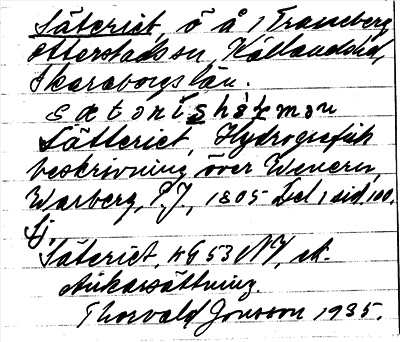 Säteriet, ö å, Traneberg,
Otterstads sn, Kållandshd,
Skaraborgs län.
Sätteriet, Hydrografisk
beskrivning över Wenern,
Warberg, P.J., 1805 Del, sid, 100.
Ej.
Säteriet, KG 53 NV, ek.
Ankarsättning.
Thorvald Jonsson 1935.